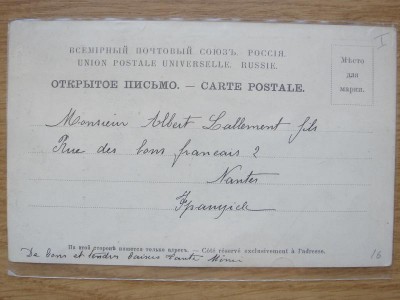 ВСЕМІРНЫЙ ПОЧТОВЫЙ СОЮЗЪ. РОССІЯ.
UNION POSTALE UNIVERSELLE. RUSSIE.
ОТКРЫТОЕ ПИСЬМО. — CARTE POSTALE.
Мѣсто
для
марки.
Monsieur Albert Lallement fils
Rue des bons francais 2
Nantes
На этой сторонѣ пишется только адресъ. — Côté réservé exclusivement à l'adresse.
De bons et tendres baisers